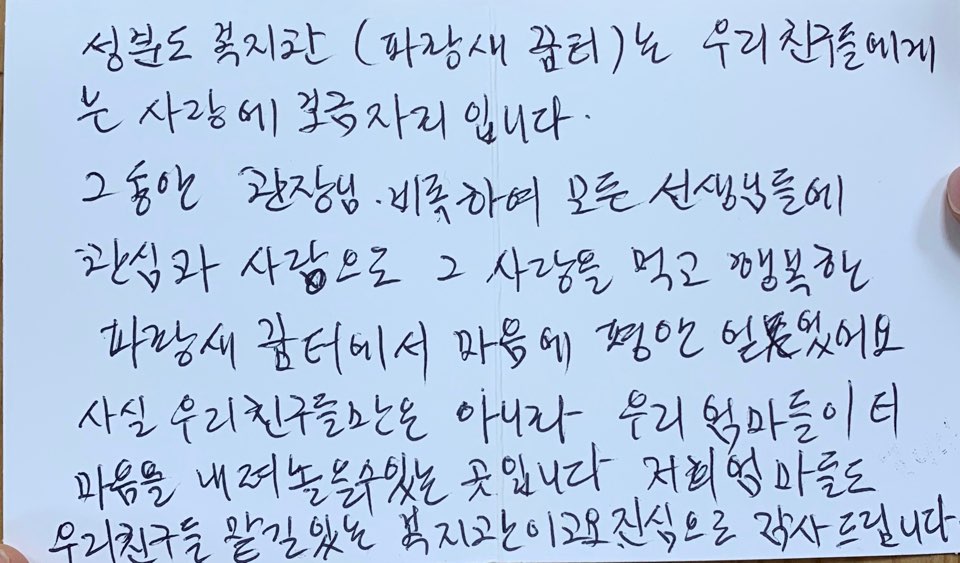 성분도 복지관 (파랑새 꿈터)는 우리친구들에게
는 사랑에 보금자리 입니다.
그동안 관장님. 비롯하여 모든 선생님들에
관심과 사랑으로 그 사랑을 먹고 행복한
파랑새 꿈터에서 마음에 평안 얻었어요
사실 우리친구들만은 아니라 우리 엄마들이 터
마음을 내려놓을수있는 곳입니다 저희엄마들도
우리친구들 맡길있는 복지관이고요 진심으로 감사드립니다